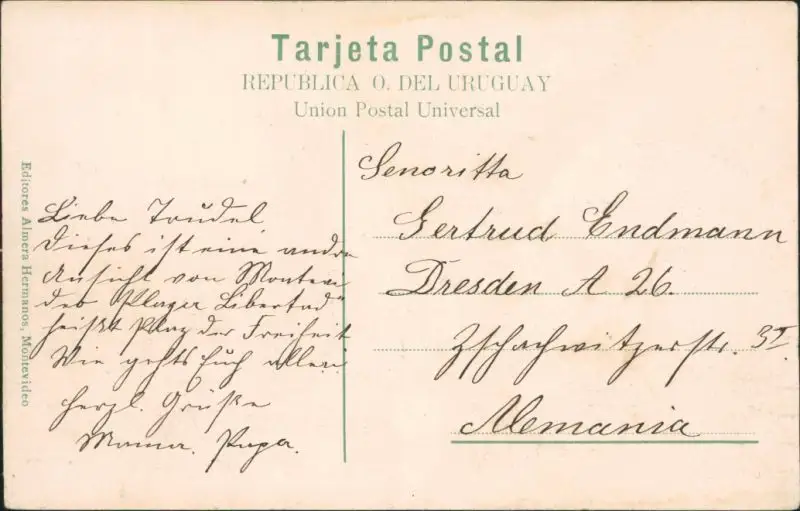 Tarjeta Postal
REPUBLICA O. DEL URUGUAY
Union Postal Universal
Editores Almera Hermanos, Montevideo
Liebe Trudel
Dieses ist eine andre
Ansicht von Montevi
deo "Plaza Libertad"
heißt Platz der Freiheit
Wie gehts Euch allen
herzl. Grüße
Mama. Papa.
Senoritta
Gertrud Endmann
Dresden A 26.
Zschachwitzerstr. 3I.
Alemania